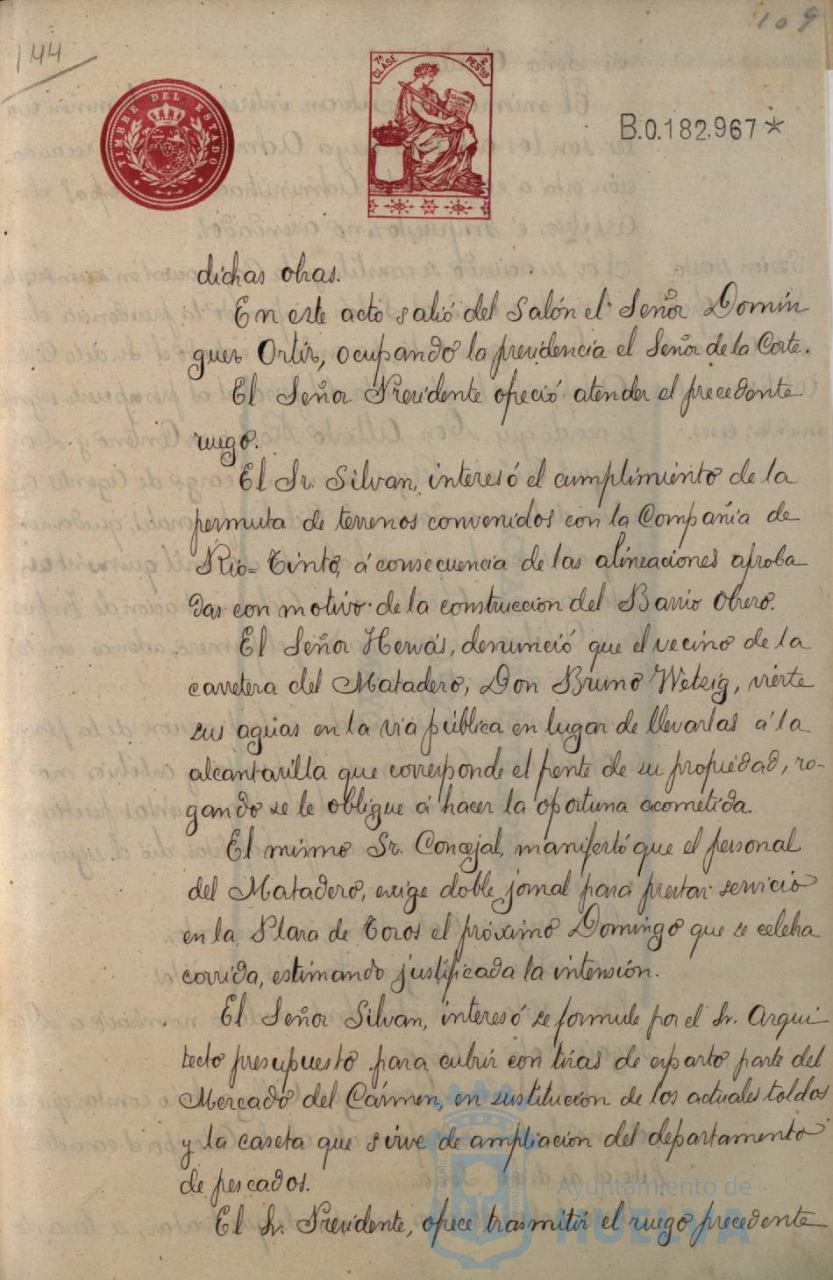 109
144
TIMBRE DEL ESTADO
7ª CLASE 2 PESTAS
B.0.182.967*
dichas obras.
En este acto salió del Salón el Señor Domín
guez Ortiz, ocupando la presidencia el Señor de la Corte.
El Señor Presidente ofreció atender el precedente
ruego.
El Sr. Silvan, interesó el cumplimiento de la
permuta de terrenos convenidos con la Compañia de
Rio=Tinto, á consecuencia de las alineaciones aproba
das con motivo de la construccion del Barrio Obrero.
El Señor Hervás, denunció que el vecino de la
carretera del Matadero, Don Bruno Wetzig, vierte
sus aguas en la via pública en lugar de llevarlas á la
alcantarilla que corresponde el frente de su propiedad, ro-
gando se le obligue á hacer la oportuna acometida.
El mismo Sr. Concejal, manifestó que el personal
del Matadero, exige doble jornal para prestar servicio
en la Plaza de Toros el próximo Domingo que se celebra
corrida, estimando justificada la intensión.
El Señor Silvan, interesó se formule por el Sr. Arqui
tecto presupuesto para cubrir con tiras de esparto parte del
Mercado del Cármen, en sustitución de los actuales toldos
y la caseta que sirve de ampliación del departamento
de pescados.
El Sr. Presidente, ofrece trasmitir el ruego precedente
Ayuntamiento de
HUELVA